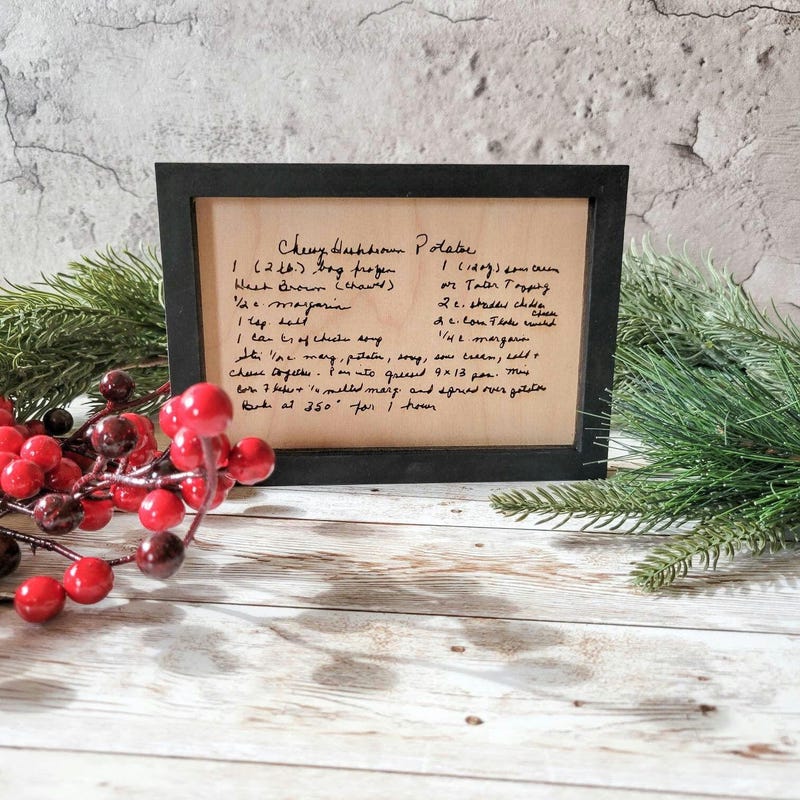 Cheesy Hashbrown Potatoe
1 (2 lb.) bag frozen
Hash Brown
1/2 c. margarin
1 tsp. salt
1 can Cr of chicken soup
1 (12 oz) sour cream
or Tater Topping
2 c. shredded chedder cheese
2 c. Corn Flake crushed
1/4 c. margarin
Stir 1/2 c. marg, potatoe, soup, sour cream, salt +
cheese together. Pour into greased 9x13 pan. Mix
Corn Flakes + 1/4 melted marg. and spread over potatoe
Bake at 350° for 1 hour